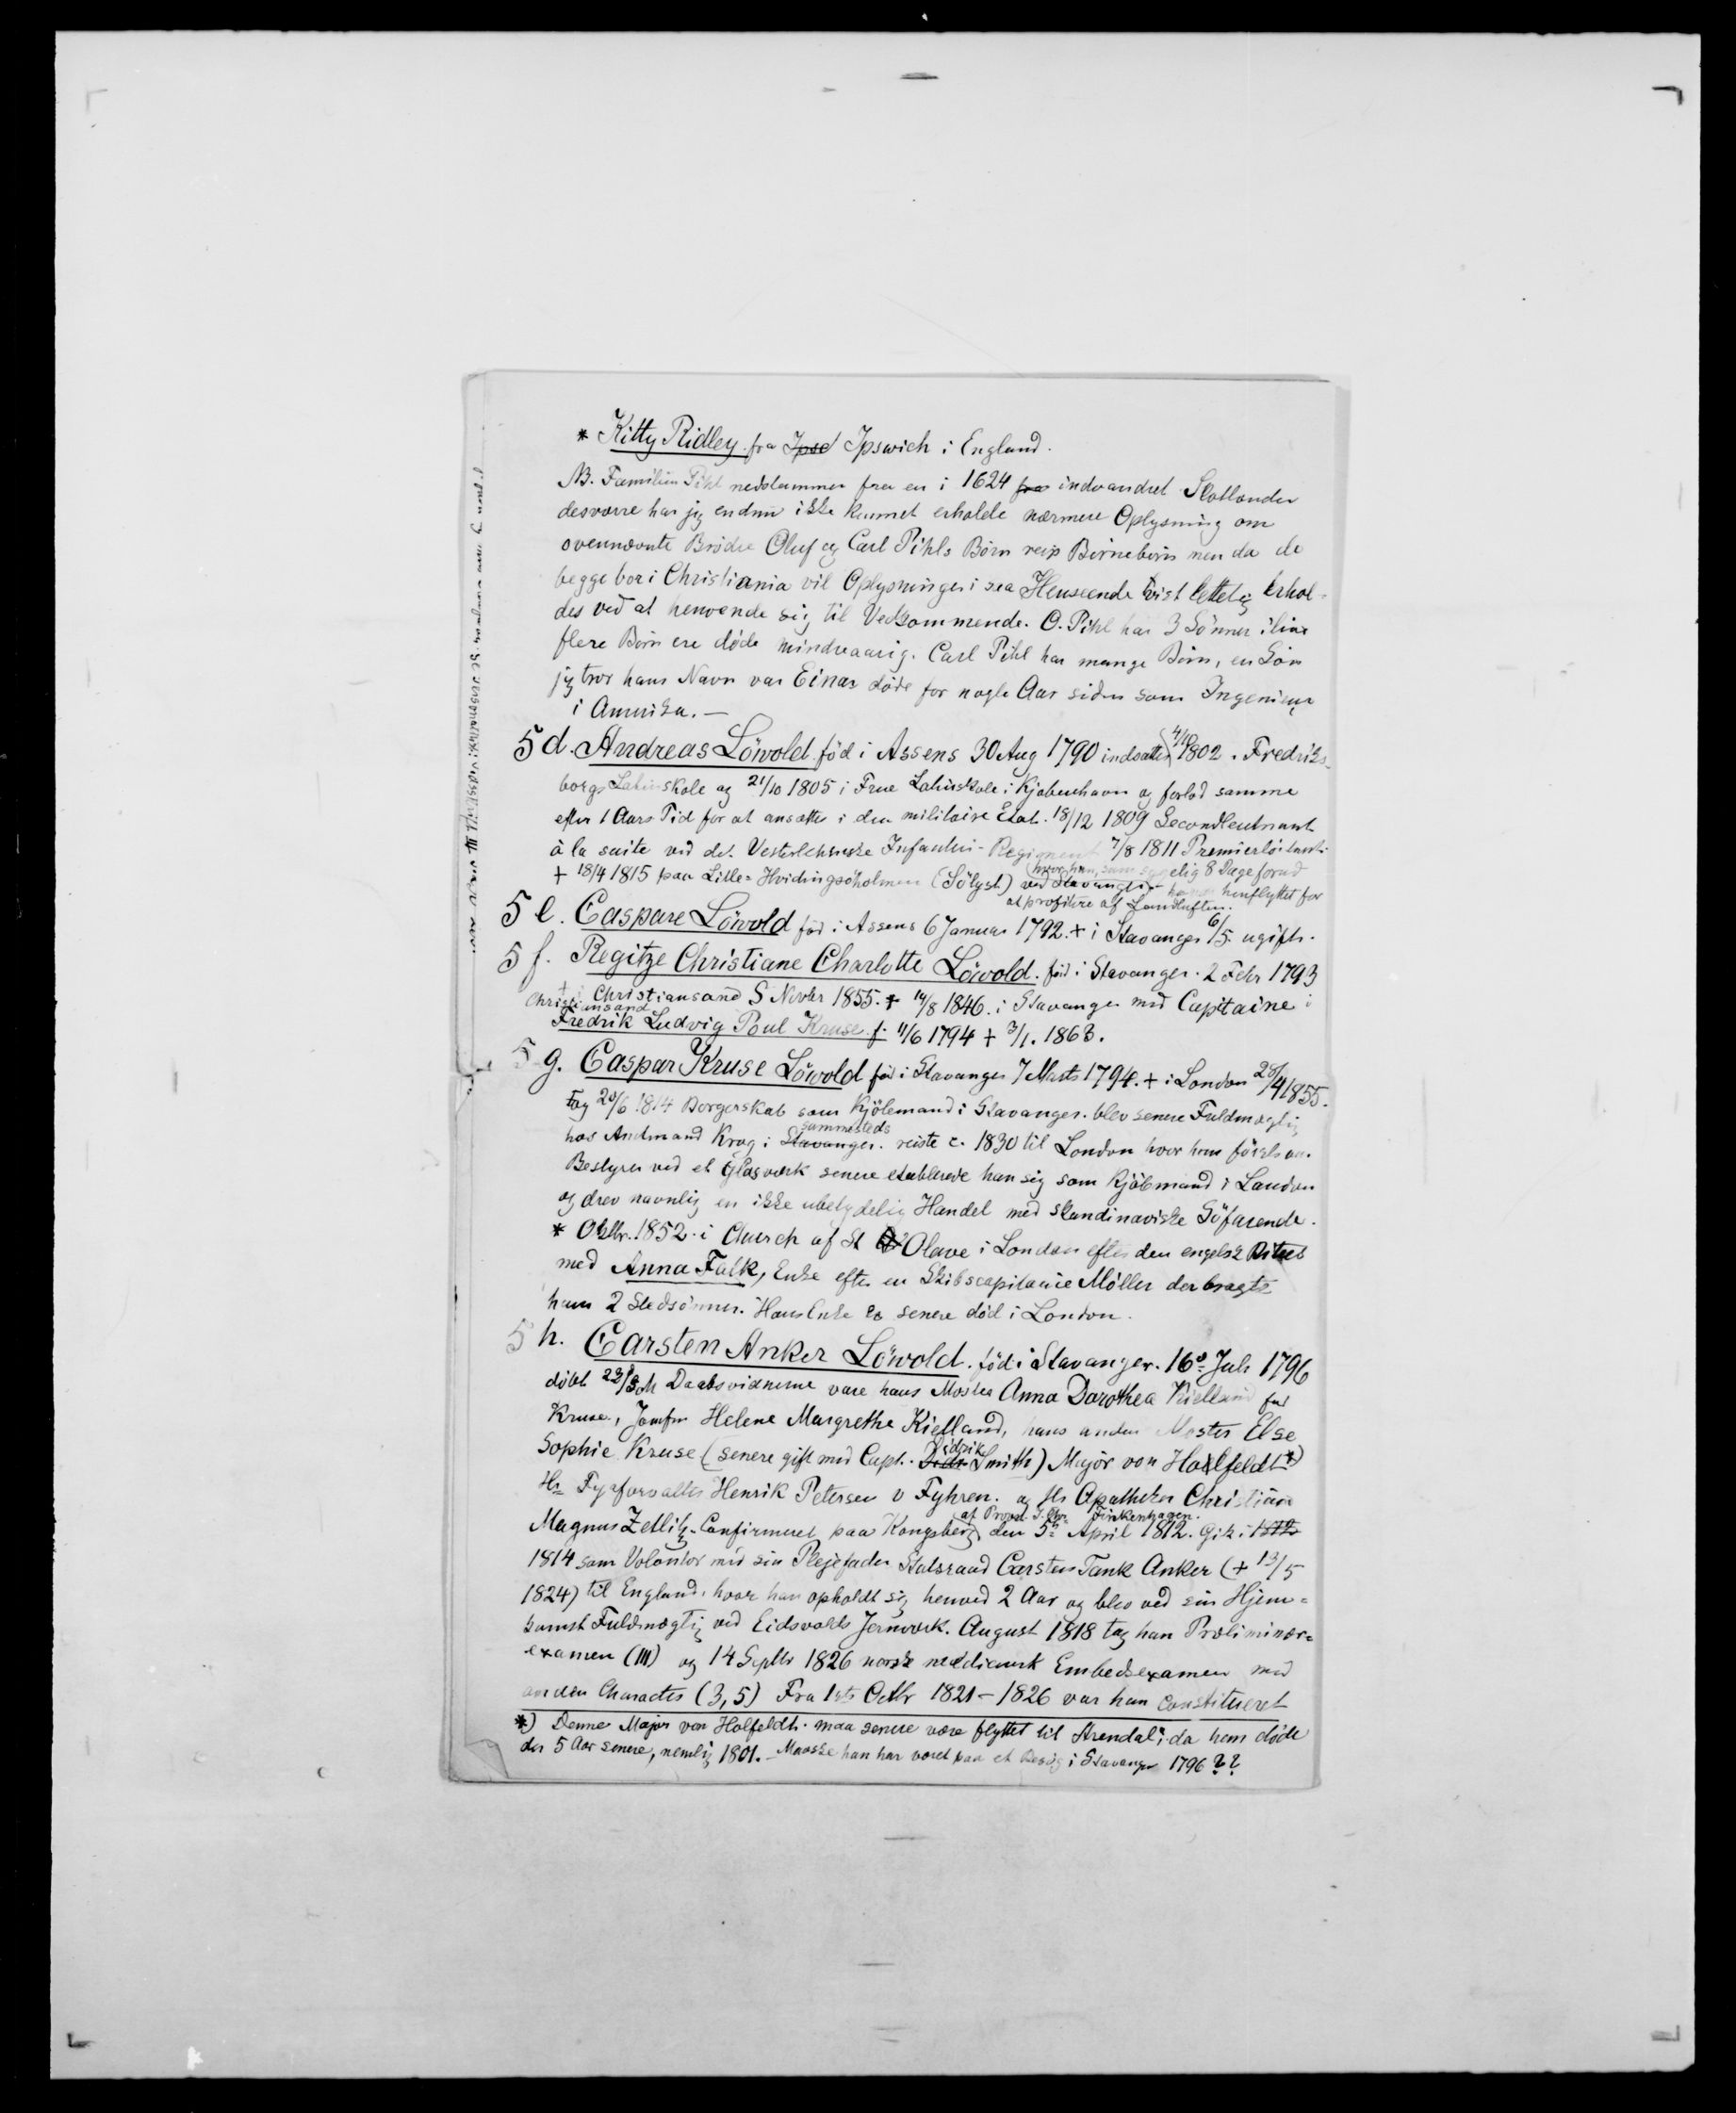 * Kitty Ridley fra Ipsd Ipswich i England.
NB. Familien Pihl nedstammer fra en i 1624 fra indvandret Skotlænder
desværre har jeg endnu ikke kunnet erholde nærmere Oplysning om
ovennævnte Brødre Oluf og Carl Pihls Børn resp Børnebørn men da de
begge bor i Christiania vil Oplysninger i saa Henseende vist lettelig erhol-
des ved at henvende sig til Vedkommende. O. Pihl har 3 Sönner ilive
flere Børn ere døde mindreaarig. Carl Pihl har mange Børn, en Søn
jeg tror hans Navn var Einar døde for nogle Aar siden som Ingenieur
i Amerika. —
5 d. Andreas Löwold föd i Assens 30 Aug 1790 indsattes 4/10 1802 i Fredriks-
borgs Latinskole og 21/10 1805 i Frue Latinskole i Kjøbenhavn og forlod samme
efter 1 Aars Tid for at ansættes i den militaire Etat. 18/12 1809 Secondlieutnant
à la suite ved det Vesterlehnske Infanteri-Regiment 7/8 1811 Premierløitnant
+ 18/4 1815 paa Lille-Hvidingsöholmen (Sölyst) ved Stavanger (hvor han, sygelig 8 Dage forud
henflyttet for
at profitere af Landluften.
5 e. Caspare Löwold föd i Assens 6 Januar 1792. + i Stavanger 6/5. ugift.
5 f. Regitze Christiane Charlotte Löwold. föd i Stavanger. 2 Febr 1793
+ i Christiansand 5 Novbr 1855. * 14/8 1846. i Stavanger med Capitaine i
Christiansand
Fredrik Ludvig Poul Kruse f. 11/6 1794 + 3/1. 1863.
5 g. Caspar Kruse Löwold föd i Stavanger 7 Marts 1794. + i London 28/4 1855.
tog 20/6 1814 Borgerskab som Kjöbmand i Stavanger. blev senere Fuldmægtig
hos Amtmand Krog i Stavanger. sammesteds reiste c. 1830 til London hvor han förskt var
Bestyrer ved et Glasværk senere etablerede han sig som Kjöbmand i London
og drev navnlig en ikke ubetydelig Handel med skandinaviske Söfarende.
* Oktbr. 1852. i Church af St Olave i London efter den engelsk Ritus
med Anna Falk, Enke efter en Skibscapitaine Möller der bragte
ham 2 Stedsönner. Hans Enke er senere död i London.
5 h. Carsten Anker Löwold. föd i Stavanger. 16de Juli 1796
döbt 23/8 Daabsvidnerne vare hans Moster Anna Dorothea Kielland født
Kruse, Jomfru Helene Margrethe Kielland, hans anden Moster Else
Sophie Kruse (senere gift med Capt. Didr Didrik Smith) Majór von Holfeldt *)
Hr Fyrforvalter Henrik Petersen v Fyhren. og Hr Apotheker Christian
Magnus Zetlitz. Confirmeret paa Kongsberg (af Provst J. Chr. Finkenhagen.) den 5te April 1812. Gik i 1812
1814 som Volontør med sin Plejefader Statsraad Carsten Tank Anker (+ 13/5
1824) til England, hvor han opholdt sig henved 2 Aar og blev ved sin Hjem-
komst Fuldmægtig ved Eidsvolds Jernværk. August 1818 tog han Præliminær-
examen (III) og 14 Septbr 1826 norsk medicinsk Embedsexamen med
anden Characteer (3,5) Fra 1ste Octbr 1821 – 1826 var han constitueret
*) Denne Major von Holfeldt. maa senere være flyttet til Arendal, da ham døde
der 5 Aar senere, nemlig 1801. – Maaske han har været paa et Besög i Stavanger 1796 ??